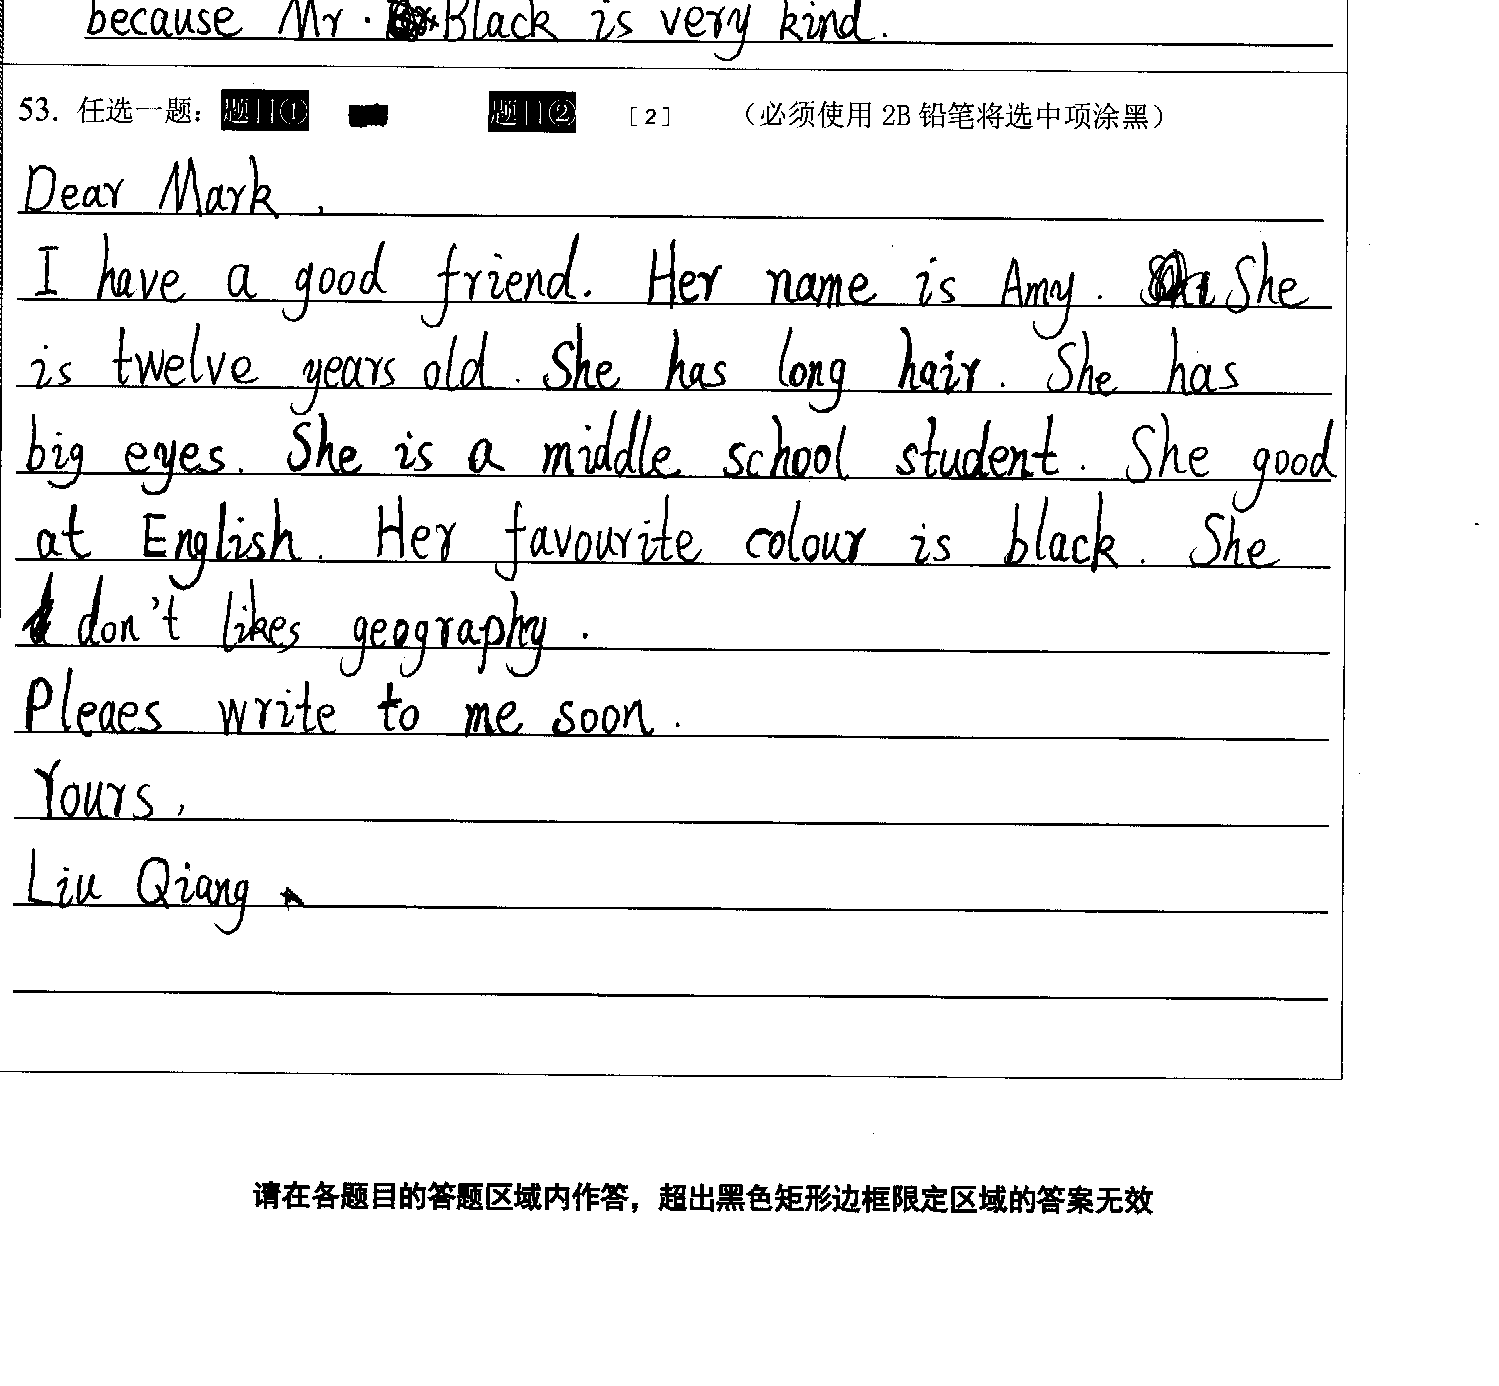 because Mr. Black is very kind.
53. 任选一题: 题目① 题目② [2] (必须使用 2B 铅笔将选中项涂黑)
Dear Mark,
I have a good friend. Her name is Amy. She
is twelve years old. She has long hair. She has
big eyes. She is a middle school student. She good
at English. Her favourite colour is black. She
don't likes geography.
Pleaes write to me soon.
Yours,
Liu Qiang
请在各题目的答题区域内作答，超出黑色矩形边框限定区域的答案无效